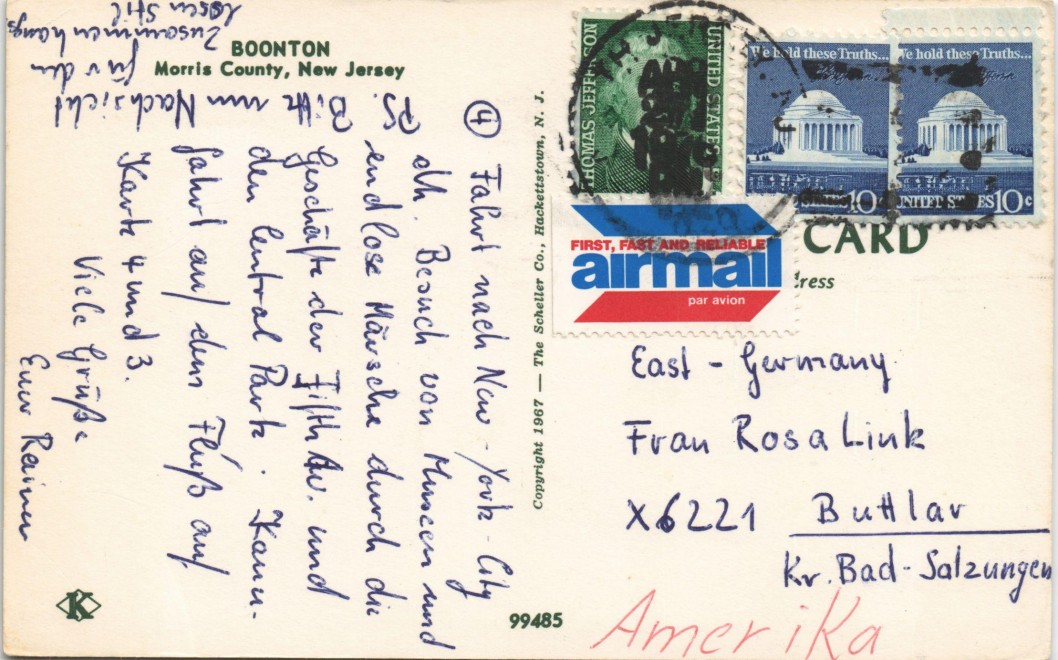 BOONTON
Morris County, New Jersey
④ Fahrt nach New-York-City
dh. Besuch von Museen und
endlose Märsche durch die
Geschäfte der Fifth Av. und
den Central Park. Kanu-
fahrt auf dem Fluß auf
Karte 4 und 3.
Viele Grüße
Euer Rainer
PS. Bitte um Nachsicht
für den
zusammenhangs
losen Stil
Copyright 1967 — The Scheller Co., Hackettstown, N. J.
K
99485
THOMAS JEFFERSON
UNITED STATES
We hold these Truths...
10c
We hold these Truths...
UNITED STATES 10c
FIRST, FAST AND RELIABLE
airmail
par avion
CARD
East - Germany
Frau Rosa Link
X6221 Buttlar
Kr. Bad-Salzungen
Amerika